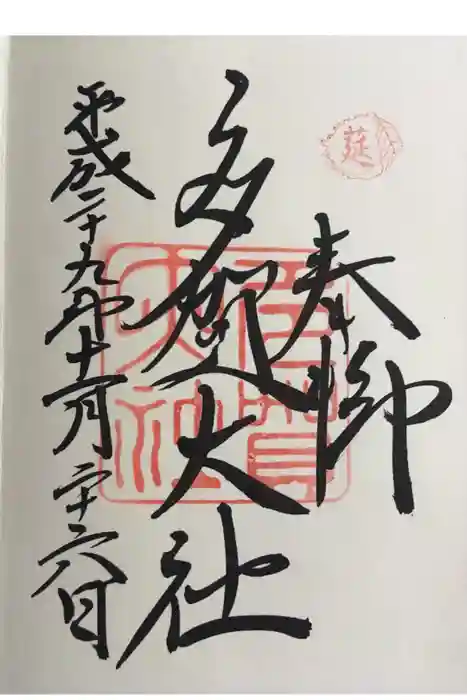 莚
奉拝
多賀大社
平成二十九年十一月二十六日
多賀大社